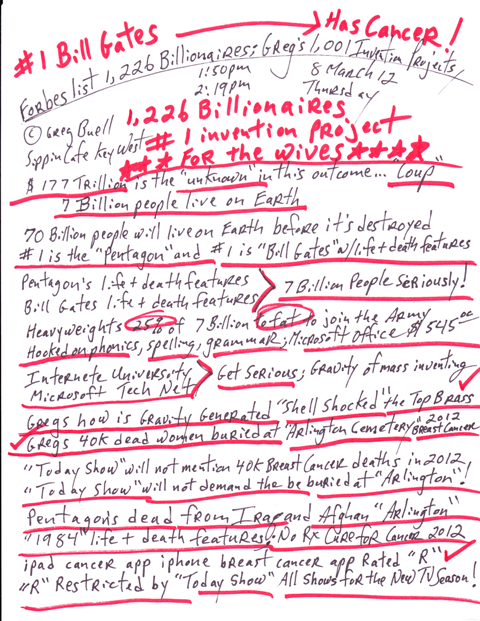 #1 Bill Gates → Has Cancer!
Forbes list 1,226 Billionaires; Greg's 1,001 Invention Projects,
1:50pm 8 March 12
2:19pm Thursday
© Greg Buell 1,226 Billionaires
Sippin Cafe Key West # 1 invention PROJECT
*** FOR the WIVES ****
$177 Trillion is the "unknown" in this outcome... "Coup"
7 Billion people live on Earth
70 Billion people will live on Earth before it's destroyed
#1 is the "Pentagon" and #1 is "Bill Gates" w/life + death features
Pentagon's life + death features
7 Billion People Seriously!
Bill Gates life + death features
Heavyweights 25% of 7 Billion to fat to join the Army
Hooked on phonics, spelling, grammar; Microsoft Office $545.00
Internete University
Get Serious; Gravity of mass inventing
Microsoft Tech Net
Gregs how is Gravity Generated "Shell Shocked" the Top Brass
Gregs 40K dead women buried at "Arlington Cemetery" 2012 Breast Cancer
"Today Show" will not mention 40K Breast Cancer deaths in 2012
"Today Show" will not demand the be buried at "Arlington"!
Pentagons dead from Iraq and Afghan "Arlington"
"1984" life + death features! No Rx Cure for Cancer 2012
ipad cancer app iphone breast cancer app Rated "R"
"R" Restricted by "Today Show" All Shows for the New TV Season!